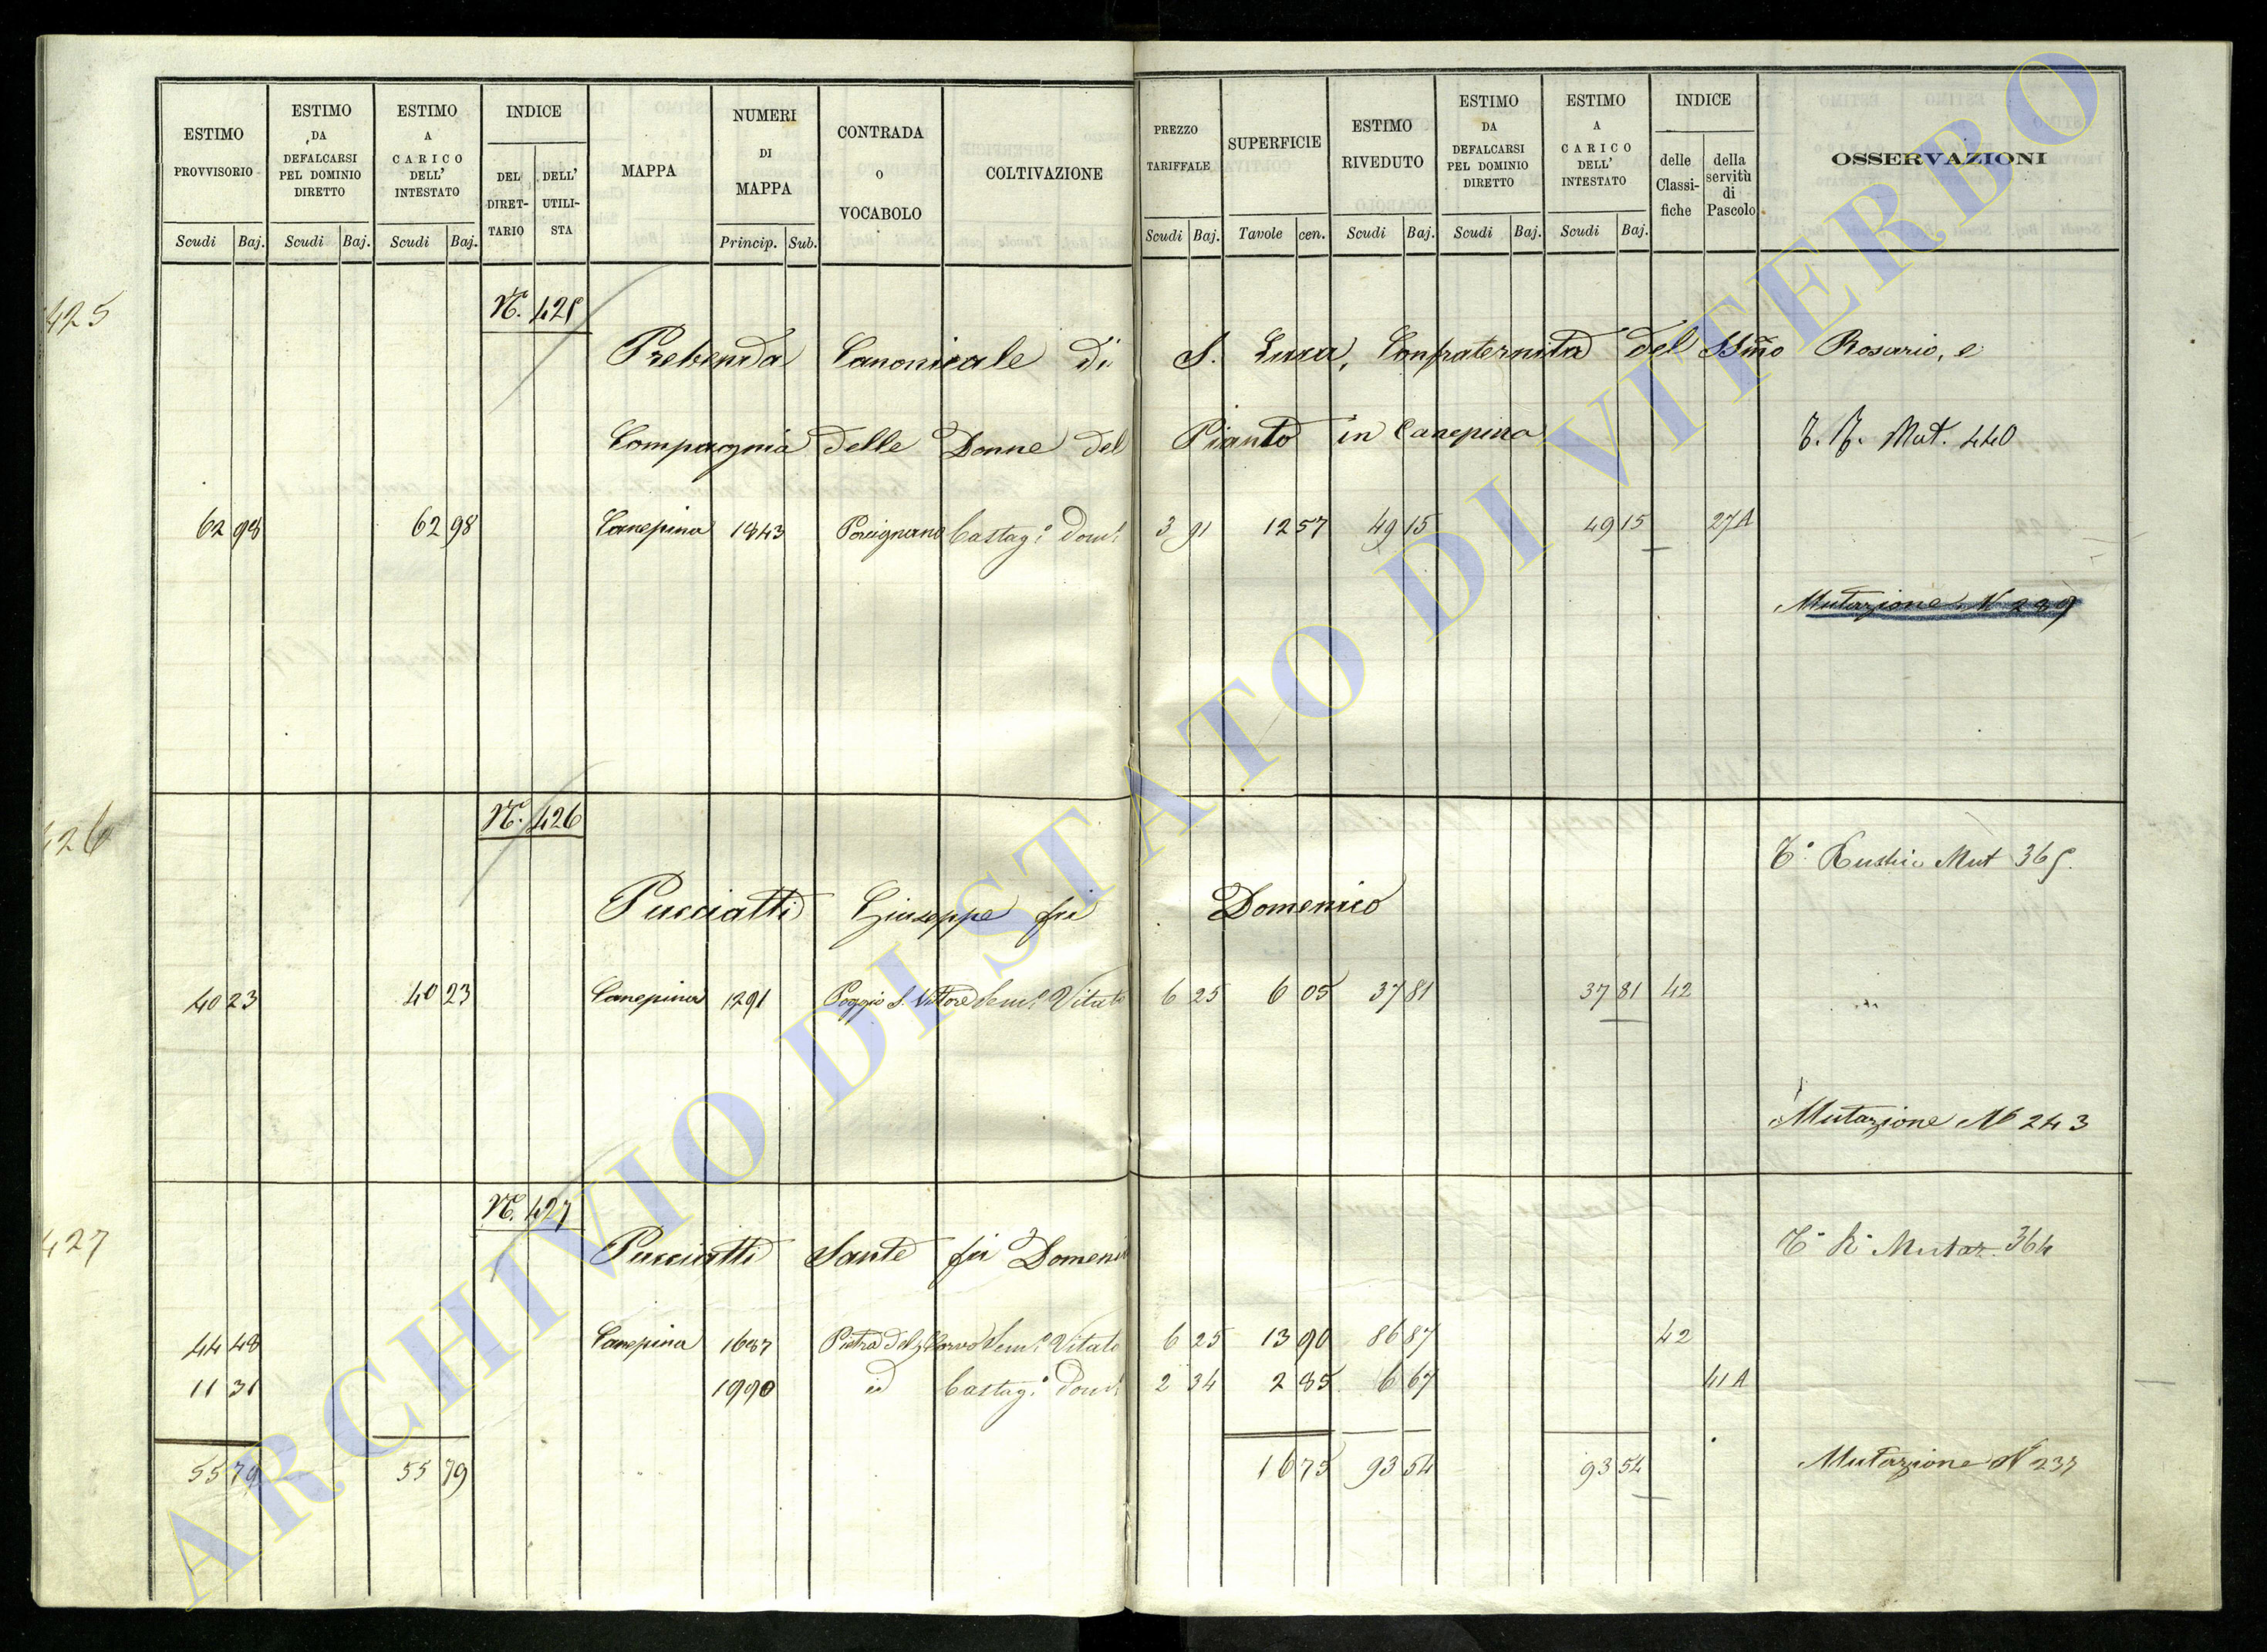 ESTIMO PROVVISORIO
ESTIMO DA DEFALCARSI PEL DOMINIO DIRETTO
ESTIMO A CARICO DELL' INTESTATO
INDICE
DEL DIRET-TARIO
DELL' UTILI-STA
MAPPA
NUMERI DI MAPPA
CONTRADA O VOCABOLO
COLTIVAZIONE
PREZZO TARIFFALE
SUPERFICIE
ESTIMO RIVEDUTO
ESTIMO DA DEFALCARSI PEL DOMINIO DIRETTO
ESTIMO A CARICO DELL' INTESTATO
INDICE
delle Classi-fiche
della servitù di Pascolo
OSSERVAZIONI
Scudi Baj. Scudi Baj. Scudi Baj. Princip. Sub. Scudi Baj. Tavole cen. Scudi Baj. Scudi Baj. Scudi Baj.
425
N. 425
Prebenda Canonicale di S. Luca, Confraternita del SSmo Rosario, e
Compagnia delle Donne del Pianto in Canepina
T. R. Mut. 440
62 98 62 98 Canepina 1843 Porcignano Castag.o Dom. 3 91 12 57 49 15 49 15 27A
Mutazione N 289
426
N. 426
T.o Rustico Mut 365.
Pucciatti Giuseppe fu Domenico
40 23 40 23 Canepina 1291 Poggio S. Vittore Sem.o Vitato 6 25 6 05 37 81 37 81 42
Mutazione N 243
427
N. 427
Pucciatti Sante fu Domeni
T.o R.o Mutaz. 364
44 48 Canepina 1687 Pietra del Corvo Sem.o Vitato 6 25 13 90 86 87 42
11 31 1990 id Castag.o Dom. 2 34 2 85 6 67 41A
55 79 55 79 16 75 93 54 93 54
Mutazione N 237
ARCHIVIO DI STATO DI VITERBO